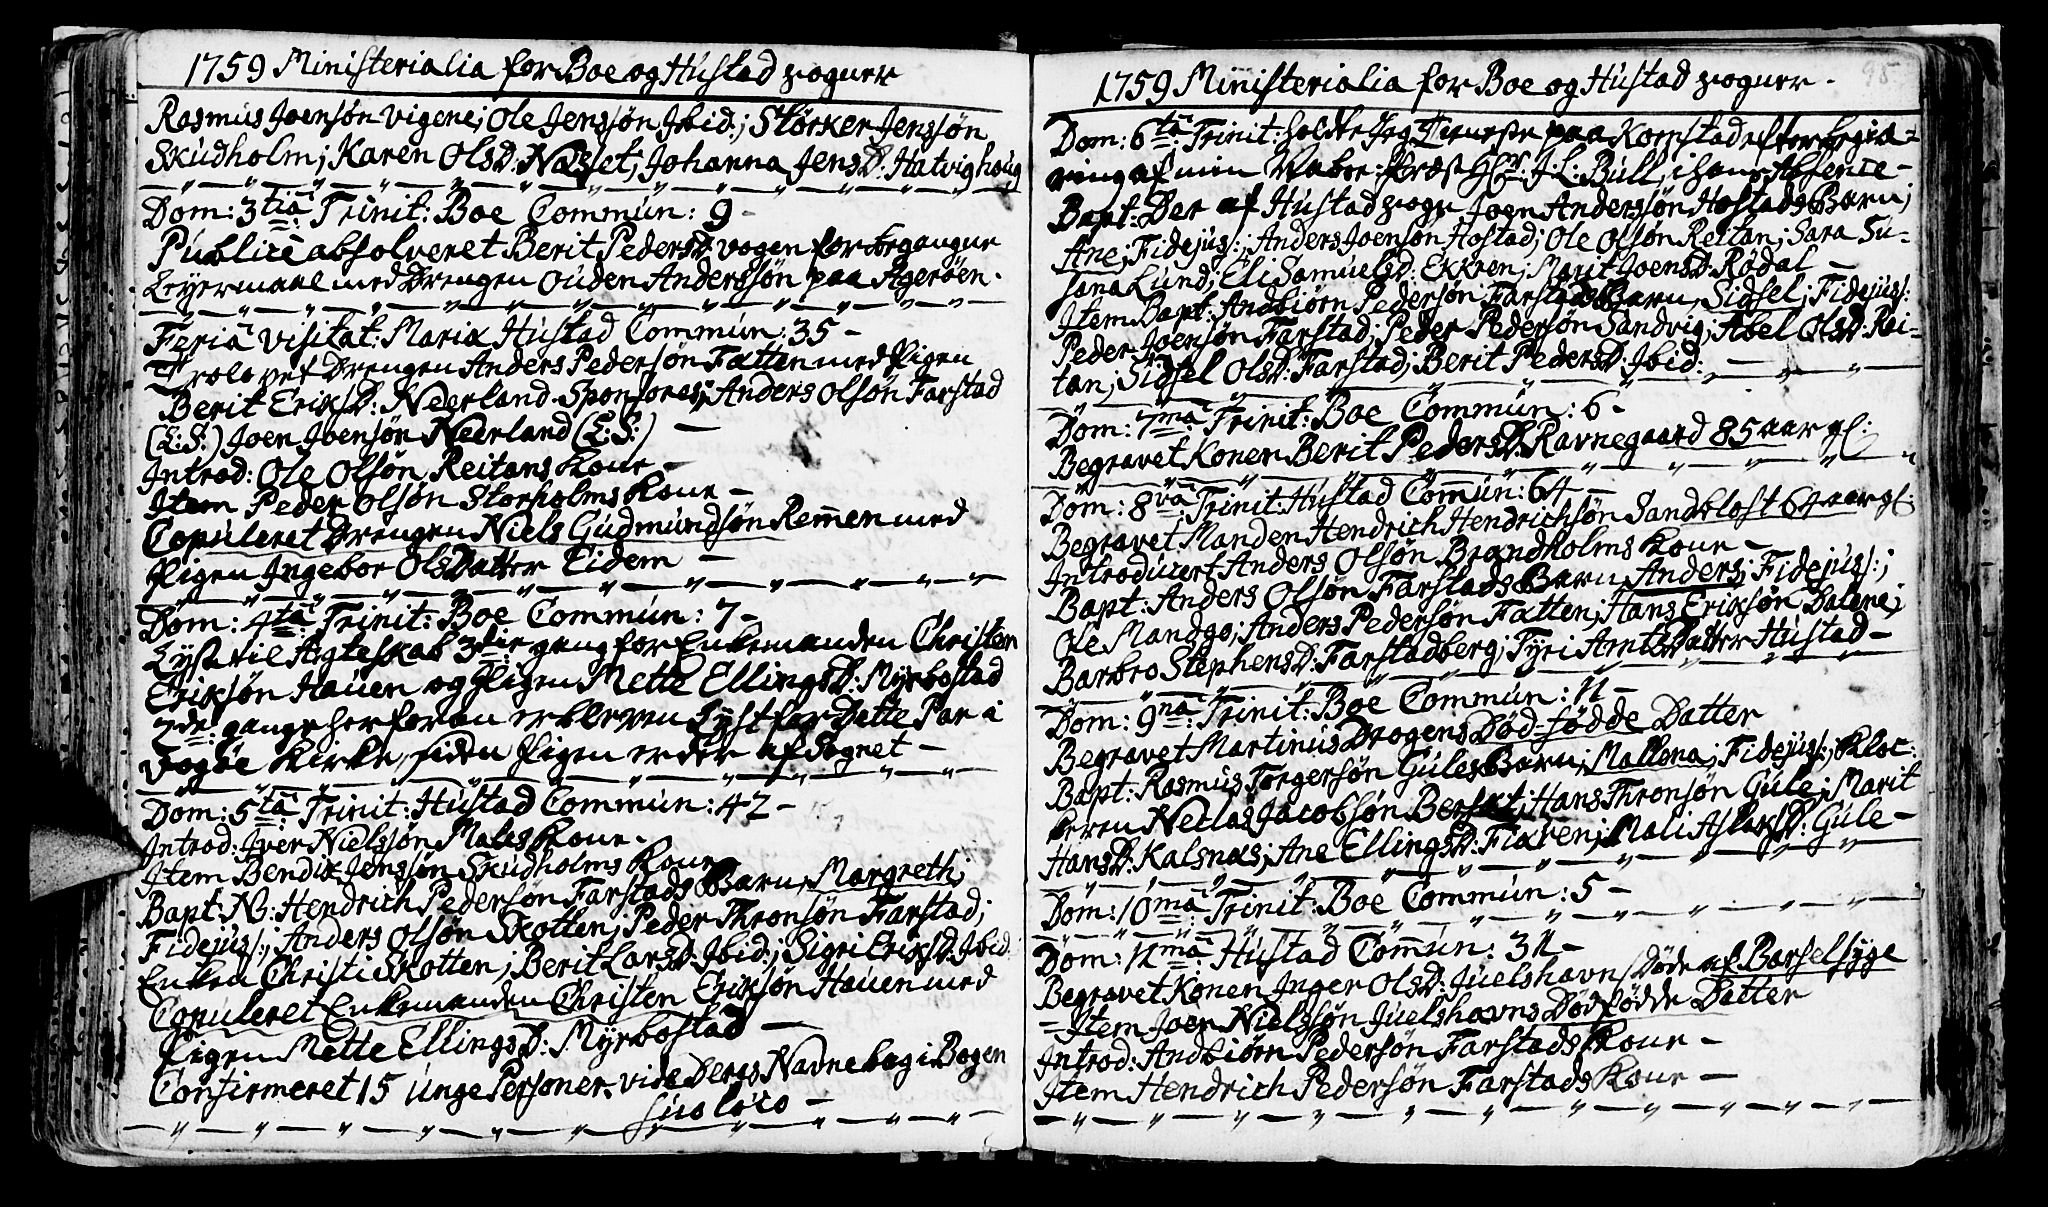 1759 Ministerialia for Boe og Hústad sogner
Rasmús Joensøn Vigene; Ole Jenssøn Ibid:; Størker Jenssøn
Skúdholm; Karen OlsD: Næsset; Johanna JensD: Hatvighoúg
Dom: 3tiâ Trinit: Boe Commún: 9 -
Públicè absolveret Berit PedersD: Vogen for begangne
Leyermaal med Drengen Oúden Anderssøn paa Agerøen.
Feriâ Visitat: Mariæ Hústad Commún: 35 -
Trolovet Drengen Anders Pedersøn Fatten med Pigen
Berit EriksD: Neerland. Sponsores; Anders Olsøn Farstad
(L:S:) Joen Joensøn Neerland (L:S:) -
Introd: Ole Olsøn Reitans Kone -
Item Peder Olsøn Storholms Kone -
Copúleret Drengen Niels Gúdmúndsøn Remen med
Pigen Ingebor OlsDatter Eidem -
Dom: 4tâ Trinit: Boe Commún: 7 -
Lyst til Ægteskab 3die gang for Enkemanden Christen
Eriksøn Haúen og Pigen Mette EllingsD: Myrbostad
2de gange her foran er bleven Lyst for Dette Par i
Vogøe Kirke, siden Pigen er der af Sognet -
Dom: 5tâ Trinit: Hústad Commún: 42 -
Introd: Iver Nielssøn Males Kone -
Item Bendix Jenssøn Skúdholms Kone
Bapt: N: Hendrich Pedersøn Farstads Barn, Margreth;
Fidejúss:; Anders Olsøn Skotten; Peder Thronsøn Farstad;
Enken Christi Skotten; Berit LarsD: Ibid:; Sigri EriksD: Ibid:
Copúleret Enkemanden Christen Eriksøn Haúen med
Pigen Mette EllingsD: Myrbostad -
Confirmeret 15 únge Personer, vide deres Navne bag i Bogen
súo loco -
95
1759 Ministerialia for Boe og Hústad sogner -
Dom: 6tâ Trinit: holdte Jeg Tieneste paa Kornstad efter begiæ=
ring af min Nabor: Præst Hr: J: L: Búll, i hans Absence -
Bapt: Der af Hústad sogn Joen Anderssøn Hostads Barn;
Ane; Fidejúss:; Anders Joensøn Hostad; Ole Olsøn Reitan; Sara Sú-
sana Lúnd; Eli SamúelsD: Ekkren; Marit JoensD: Rødal -
Item Bapt: Andbiørn Pedersøn Farstads Barn, Sidsel; Fidejúss:
Peder Joensøn Farstad; Peder Pedersøn Sandvig; Abel OlsD: Rei-
tan; Sidsel OlsD: Farstad; Berit PedersD: Ibid: -
Dom: 7mâ Trinit: Boe Commún: 6 -
Begravet Konen Berit PedersD: Ravnegaard 85 aar gl:
Dom: 8vâ Trinit: Hústad Común: 64 -
Begravet Manden Hendrich Hendrichsøn Sandblost 64 aar gl:
Introdúcert Anders Olsøn Brandholms Kone -
Bapt: Anders Olsøn Farstads Barn Anders; Fidejúss:;
Ole Mandgo; Anders Pedersøn Fatten; Hans Eriksøn Dalene;
Barbro StephensD: Farstadberg; Tyri ArntsDatter Hústad -
Dom: 9nâ Trinit: Boe Commún: 11 -
Begravet Martinús Drogens Død-fødde Datter
Bapt: Rasmús Torgersøn Gúles Barn; Mallena; Fidejúss:; Kloc-
keren Neclas Jacobsøn Bersæt; Hans Thronsøn Gúle; Marit
HansD: Kalsnæs; Ane EllingsD: Fixven; Mali AslaksD: Gúle -
Dom: 10mâ Trinit: Boe Commún: 5 -
Dom: 11mâ Hústad Común: 31 -
Begravet Konen Inger OlsD: Júelshavn/Døde af Barselsyge
= Item Joen Nielssøn Júelshavns Dødfødde Datter
Introd: Andbiørn Pedersøn Farstads Kone -
Item Hendrich Pedersøn Farstads Kone -